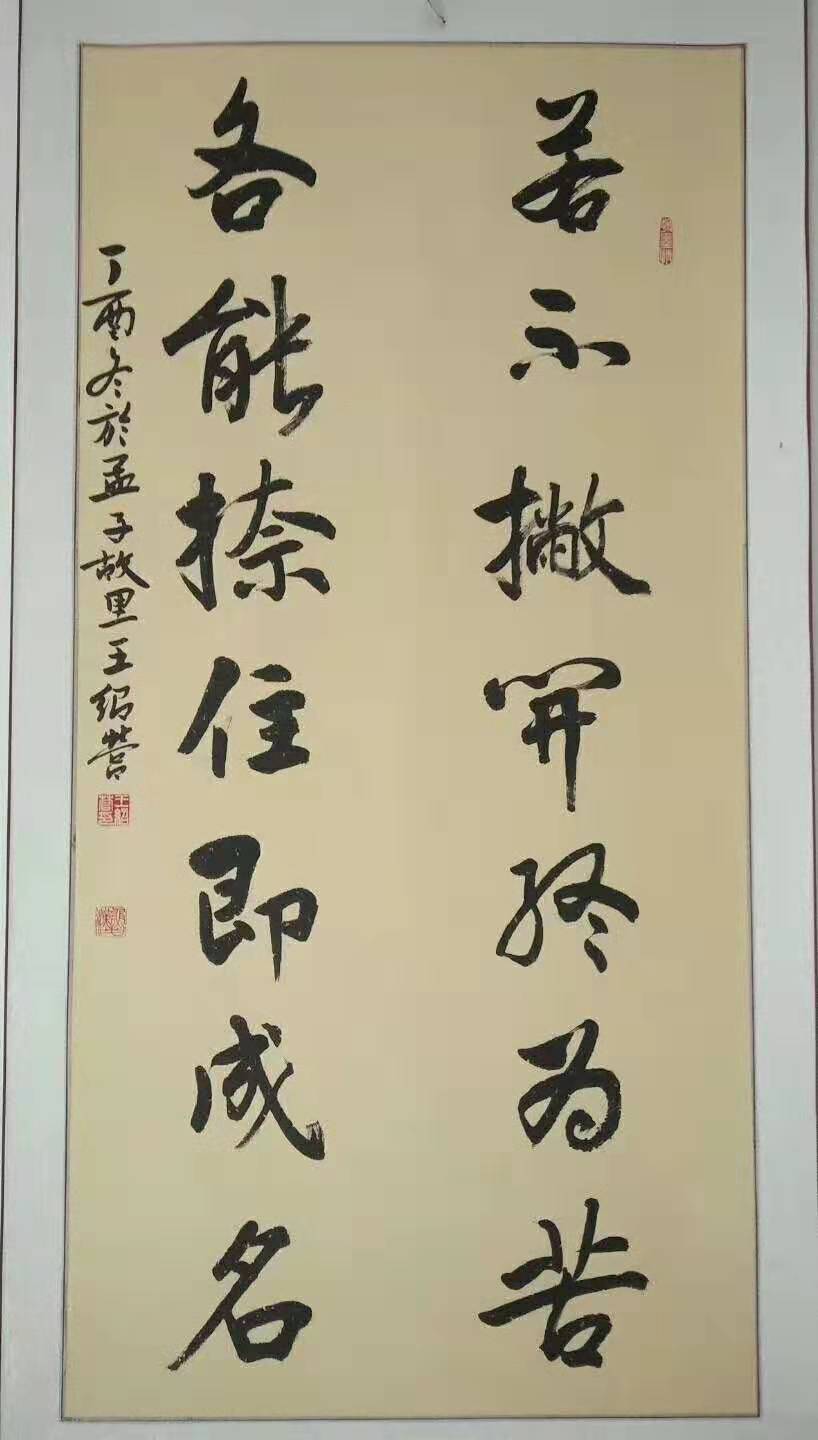 若不撇開终为苦
各能捺住即成名
丁酉冬於孟子故里王绍营